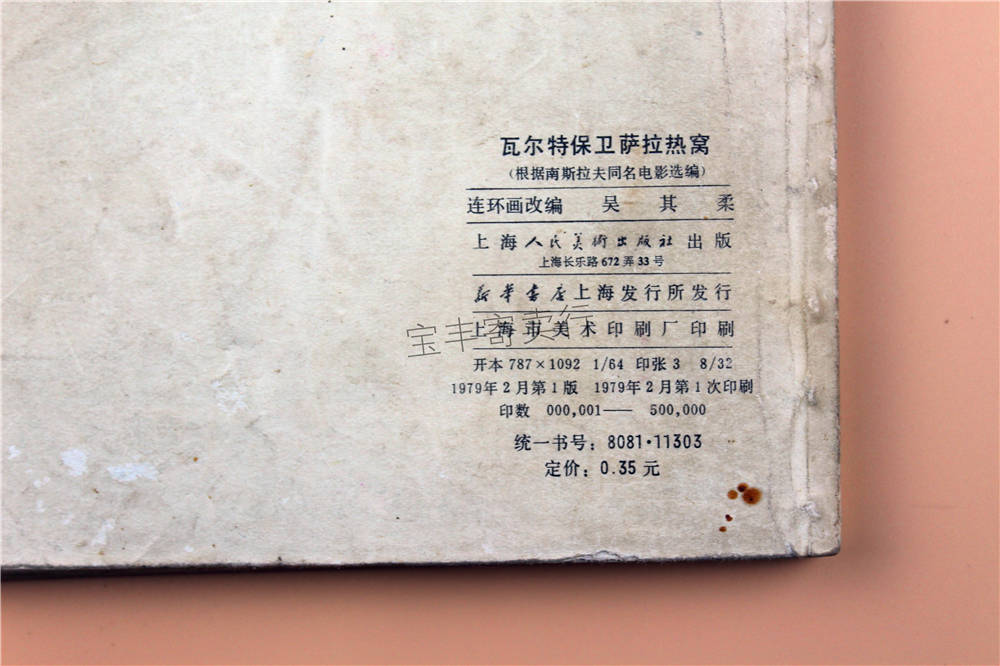 瓦尔特保卫萨拉热窝
(根据南斯拉夫同名电影选编)
连环画改编 吴其柔
上海人民美術出版社出版
上海长乐路672弄33号
新华书店上海发行所发行
上海市美术印刷厂印刷
宝丰寄卖行
开本 787×1092 1/64 印张 3 8/32
1979年2月第1版 1979年2月第1次印刷
印数 000,001—— 500,000
统一书号: 8081·11303
定价: 0.35 元